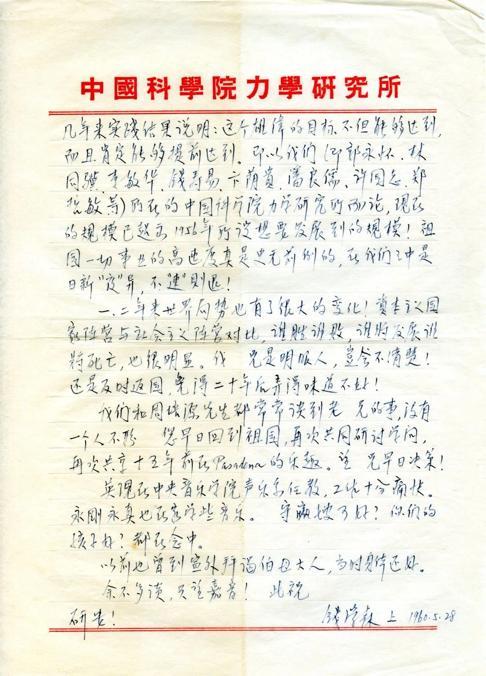 中國科學院力學研究所
几年来实践结果说明:这个雄偉的目标不但能够达到,
而且肯定能够提前达到。即以我们(即郭永怀、林
同骥、李敏华、钱寿易、卞荫貴、潘良儒、许国志、郑
哲敏等)所在的中国科学院力学研究所而论,现在
的规模已超出1956年所设想要发展到的规模!祖
国一切事业的高速度真是史无前例的,在我们之中是
日新“夜”異,不速则退!
一、二年来世界局势也有了很大的变化!資本主义国
家阵营与社会主义阵营对比,谁胜谁敗,谁将发展谁
将死亡,也很明显。伐 兄是明眼人,豈会不清楚!
还是及时返国,免得二十年后弄得味道不好!
我们和周培源先生都常常谈到老 兄的事,没有
一个人不盼 您早日回到祖国,再次共同研讨学问,
再次共享十五年前在Pasadena的乐趣。望 兄早日决策!
英现在中央音乐学院声乐系任教,工作十分痛快。
永刚永真也在家学些音乐。 守瀛嫂可好?你们的
孩子好?都在念中。
以前也曾到宣外拜谒伯母大人,当时身体还好。
余不多谈,只望嘉音! 此祝
研安! 钱学森 上 1960.5.28